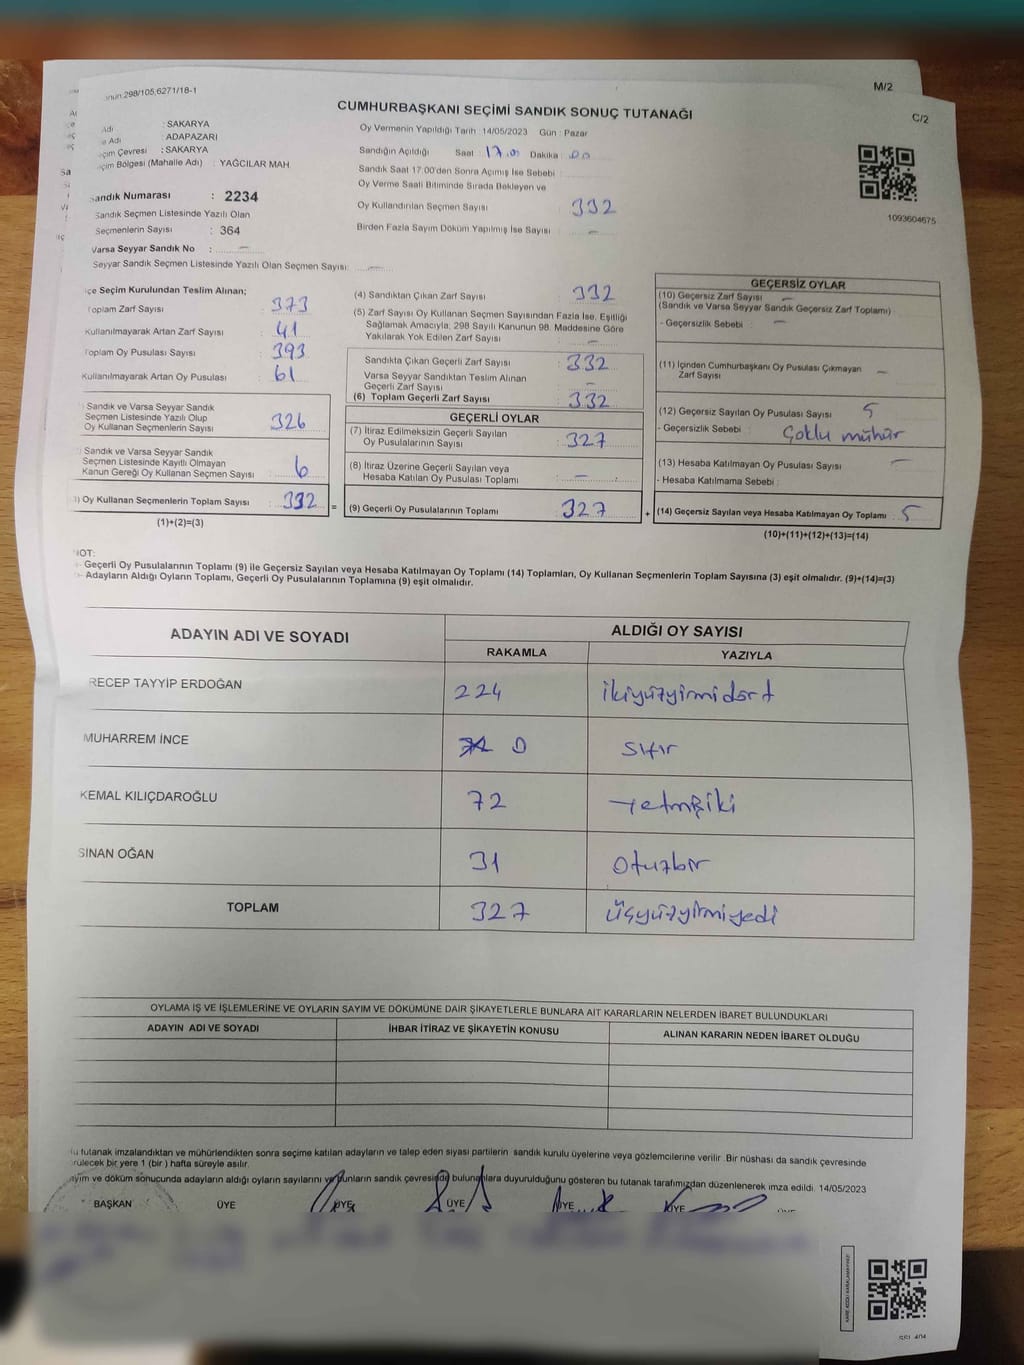 M/2
C/2
298/105,6271/18-1
CUMHURBAŞKANI SEÇİMİ SANDIK SONUÇ TUTANAĞI
Adı : SAKARYA
Adı : ADAPAZARI
Çevresi : SAKARYA
Bölgesi (Mahalle Adı) : YAĞCILAR MAH.
Sandık Numarası : 2234
Sandık Seçmen Listesinde Yazılı Olan
Seçmenlerin Sayısı : 364
Varsa Seyyar Sandık No : —
Seyyar Sandık Seçmen Listesinde Yazılı Olan Seçmen Sayısı: —
Oy Vermenin Yapıldığı Tarih : 14/05/2023 Gün : Pazar
Sandığın Açıldığı Saat : 17.00 Dakika : 00
Sandık Saat 17:00'den Sonra Açımış İse Sebebi :
Oy Verme Saati Bitiminde Sırada Bekleyen ve
Oy Kullandırılan Seçmen Sayısı 332
Birden Fazla Sayım Döküm Yapılmış İse Sayısı —
1093604675
Seçim Kurulundan Teslim Alınan;
Toplam Zarf Sayısı : 373
Kullanılmayarak Artan Zarf Sayısı : 41
Toplam Oy Pusulası Sayısı : 393
Kullanılmayarak Artan Oy Pusulası : 61
Sandık ve Varsa Seyyar Sandık
Seçmen Listesinde Yazılı Olup
Oy Kullanan Seçmenlerin Sayısı : 326
Sandık ve Varsa Seyyar Sandık
Seçmen Listesinde Kayıtlı Olmayan
Kanun Gereği Oy Kullanan Seçmen Sayısı : 6
Oy Kullanan Seçmenlerin Toplam Sayısı : 332 =
(1)+(2)=(3)
(4) Sandıktan Çıkan Zarf Sayısı : 332
(5) Zarf Sayısı Oy Kullanan Seçmen Sayısından Fazla İse, Eşitliği
Sağlamak Amacıyla, 298 Sayılı Kanunun 98. Maddesine Göre
Yakılarak Yok Edilen Zarf Sayısı : —
Sandıkta Çıkan Geçerli Zarf Sayısı : 332
Varsa Seyyar Sandıktan Teslim Alınan
Geçerli Zarf Sayısı : —
(6) Toplam Geçerli Zarf Sayısı : 332
GEÇERLİ OYLAR
(7) İtiraz Edilmeksizin Geçerli Sayılan
Oy Pusulalarının Sayısı : 327
(8) İtiraz Üzerine Geçerli Sayılan veya
Hesaba Katılan Oy Pusulası Toplamı : —
(9) Geçerli Oy Pusulalarının Toplamı : 327 +
GEÇERSİZ OYLAR
(10) Geçersiz Zarf Sayısı —
(Sandık ve Varsa Seyyar Sandık Geçersiz Zarf Toplamı)
- Geçersizlik Sebebi : —
(11) İçinden Cumhurbaşkanı Oy Pusulası Çıkmayan
Zarf Sayısı —
(12) Geçersiz Sayılan Oy Pusulası Sayısı : 5
- Geçersizlik Sebebi : Çoklu mühür
(13) Hesaba Katılmayan Oy Pusulası Sayısı : —
- Hesaba Katılmama Sebebi :
(14) Geçersiz Sayılan veya Hesaba Katılmayan Oy Toplamı : 5
(10)+(11)+(12)+(13)=(14)
NOT:
- Geçerli Oy Pusulalarının Toplamı (9) ile Geçersiz Sayılan veya Hesaba Katılmayan Oy Toplamı (14) Toplamları, Oy Kullanan Seçmenlerin Toplam Sayısına (3) eşit olmalıdır. (9)+(14)=(3)
- Adayların Aldığı Oyların Toplamı, Geçerli Oy Pusulalarının Toplamına (9) eşit olmalıdır.
ADAYIN ADI VE SOYADI ALDIĞI OY SAYISI
RAKAMLA YAZIYLA
RECEP TAYYİP ERDOĞAN 224 ikiyüzyirmidört
MUHARREM İNCE 0 sıfır
KEMAL KILIÇDAROĞLU 72 yetmişiki
SİNAN OĞAN 31 otuzbir
TOPLAM 327 üçyüzyirmiyedi
OYLAMA İŞ VE İŞLEMLERİNE VE OYLARIN SAYIM VE DÖKÜMÜNE DAİR ŞİKAYETLERLE BUNLARA AİT KARARLARIN NELERDEN İBARET BULUNDUKLARI
ADAYIN ADI VE SOYADI İHBAR İTİRAZ VE ŞİKAYETİN KONUSU ALINAN KARARIN NEDEN İBARET OLDUĞU
tutanak imzalandıktan ve mühürlendikten sonra seçime katılan adayların ve talep eden siyası partilerin sandık kurulu üyelerine veya gözlemcilerine verilir. Bir nüshası da sandık çevresinde
bir yere 1 (bir) hafta süreyle asılır.
ve döküm sonucunda adayların aldığı oyların sayılarını ve bunların sandık çevresinde bulunanlara duyurulduğunu gösteren bu tutanak tarafımızdan düzenlenerek imza edildi. 14/05/2023
BAŞKAN ÜYE ÜYE ÜYE ÜYE ÜYE